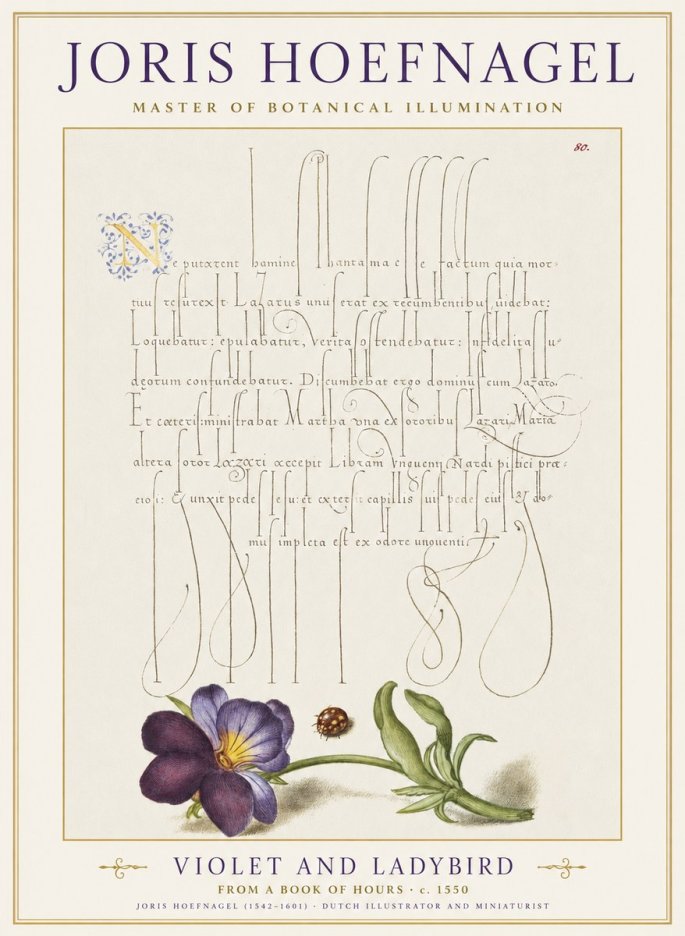 JORIS HOEFNAGEL
MASTER OF BOTANICAL ILLUMINATION
80.
Ne putarent homines phantasma esse factum quia mor-
tuus resurexit Lazarus unus erat ex recumbentibus, uidebat:
Loquebatur: epulabatur, veritas ostendebatur: infidelitas Iu-
deorum confundebatur. Discumbebat ergo dominus cum Lazaro.
Et cæteris: ministrabat Martha vna ex sororibus Lazari, Maria
altera soror Lazari accepit Libram vnguenti Nardi pistici præ-
ciosi: & unxit pedes Iesu: et extersit capillis suis pedes eius & do-
mus impleta est ex odore unguenti.
VIOLET AND LADYBIRD
FROM A BOOK OF HOURS · c. 1550
JORIS HOEFNAGEL (1542–1601) · DUTCH ILLUSTRATOR AND MINIATURIST